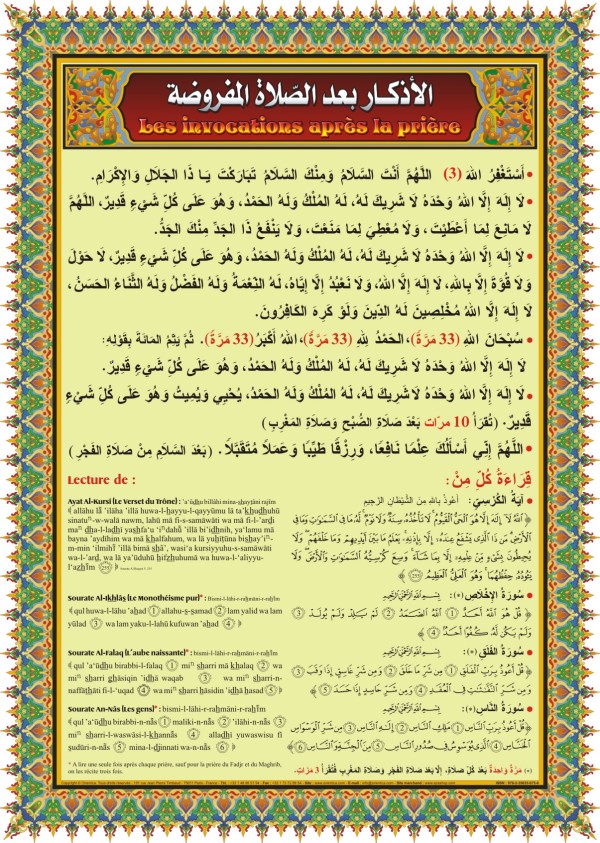 الأذكار بعد الصّلاة المفروضة
Les invocations après la prière
• أَسْتَغْفِرُ اللهَ (3) اللَّهُمَّ أَنْتَ السَّلَامُ وَمِنْكَ السَّلَامُ تَبَارَكْتَ يَا ذَا الْجَلَالِ وَالإِكْرَامِ.
• لَا إِلَهَ إِلَّا اللهُ وَحْدَهُ لَا شَرِيكَ لَهُ، لَهُ المُلْكُ وَلَهُ الحَمْدُ، وَهُوَ عَلَى كُلِّ شَيْءٍ قَدِيرٌ، اللَّهُمَّ
لَا مَانِعَ لِمَا أَعْطَيْتَ، وَلَا مُعْطِيَ لِمَا مَنَعْتَ، وَلَا يَنْفَعُ ذَا الجَدِّ مِنْكَ الجَدُّ.
• لَا إِلَهَ إِلَّا اللهُ وَحْدَهُ لَا شَرِيكَ لَهُ، لَهُ المُلْكُ وَلَهُ الحَمْدُ، وَهُوَ عَلَى كُلِّ شَيْءٍ قَدِيرٌ، لَا حَوْلَ
وَلَا قُوَّةَ إِلَّا بِاللهِ، لَا إِلَهَ إِلَّا اللهُ، وَلَا نَعْبُدُ إِلَّا إِيَّاهُ، لَهُ النِّعْمَةُ وَلَهُ الفَضْلُ وَلَهُ الثَّنَاءُ الحَسَنُ،
لَا إِلَهَ إِلَّا اللهُ مُخْلِصِينَ لَهُ الدِّينَ وَلَوْ كَرِهَ الكَافِرُونَ.
• سُبْحَانَ اللهِ (33 مَرَّةً)، الحَمْدُ لِلهِ (33 مَرَّةً)، اللهُ أَكْبَرُ (33 مَرَّةً). ثُمَّ يَتِمُّ المَائَةَ بِقَوْلِهِ:
لَا إِلَهَ إِلَّا اللهُ وَحْدَهُ لَا شَرِيكَ لَهُ، لَهُ المُلْكُ وَلَهُ الحَمْدُ، وَهُوَ عَلَى كُلِّ شَيْءٍ قَدِيرٌ.
• لَا إِلَهَ إِلَّا اللهُ وَحْدَهُ لَا شَرِيكَ لَهُ، لَهُ المُلْكُ وَلَهُ الحَمْدُ، يُحْيِي وَيُمِيتُ وَهُوَ عَلَى كُلِّ شَيْءٍ
قَدِيرٌ. (تُقْرَأُ 10 مرّات بَعْدَ صَلَاةِ الصُّبْحِ وَصَلَاةِ المَغْرِبِ)
• اللَّهُمَّ إِنِّي أَسْأَلُكَ عِلْمًا نَافِعًا، وَرِزْقًا طَيِّبًا وَعَمَلًا مُتَقَبَّلًا. (بَعْدَ السَّلَامِ مِنْ صَلَاةِ الفَجْرِ)
قِرَاءَةُ كُلٍّ مِنْ:
• آيَةُ الكُرْسِيِّ: أَعُوذُ بِاللهِ مِنَ الشَّيْطَانِ الرَّجِيمِ
﴿ اللَّهُ لَا إِلَهَ إِلَّا هُوَ الْحَيُّ الْقَيُّومُ لَا تَأْخُذُهُ سِنَةٌ وَلَا نَوْمٌ لَهُ مَا فِي السَّمَاوَاتِ وَمَا فِي
الْأَرْضِ مَنْ ذَا الَّذِي يَشْفَعُ عِنْدَهُ إِلَّا بِإِذْنِهِ يَعْلَمُ مَا بَيْنَ أَيْدِيهِمْ وَمَا خَلْفَهُمْ وَلَا
يُحِيطُونَ بِشَيْءٍ مِنْ عِلْمِهِ إِلَّا بِمَا شَاءَ وَسِعَ كُرْسِيُّهُ السَّمَاوَاتِ وَالْأَرْضَ وَلَا
يَئُودُهُ حِفْظُهُمَا وَهُوَ الْعَلِيُّ الْعَظِيمُ (255) ﴾
• سُورَةُ الإِخْلَاصِ (*): بِسْمِ اللَّهِ الرَّحْمَنِ الرَّحِيمِ
﴿ قُلْ هُوَ اللَّهُ أَحَدٌ (1) اللَّهُ الصَّمَدُ (2) لَمْ يَلِدْ وَلَمْ يُولَدْ (3)
وَلَمْ يَكُنْ لَهُ كُفُوًا أَحَدٌ (4) ﴾
• سُورَةُ الفَلَقِ (*): بِسْمِ اللَّهِ الرَّحْمَنِ الرَّحِيمِ
﴿ قُلْ أَعُوذُ بِرَبِّ الْفَلَقِ (1) مِنْ شَرِّ مَا خَلَقَ (2) وَمِنْ شَرِّ غَاسِقٍ إِذَا وَقَبَ (3)
وَمِنْ شَرِّ النَّفَّاثَاتِ فِي الْعُقَدِ (4) وَمِنْ شَرِّ حَاسِدٍ إِذَا حَسَدَ (5) ﴾
• سُورَةُ النَّاسِ (*): بِسْمِ اللَّهِ الرَّحْمَنِ الرَّحِيمِ
﴿ قُلْ أَعُوذُ بِرَبِّ النَّاسِ (1) مَلِكِ النَّاسِ (2) إِلَهِ النَّاسِ (3) مِنْ شَرِّ الْوَسْوَاسِ
الْخَنَّاسِ (4) الَّذِي يُوَسْوِسُ فِي صُدُورِ النَّاسِ (5) مِنَ الْجِنَّةِ وَالنَّاسِ (6) ﴾
(*) مَرَّةً وَاحِدَةً بَعْدَ كُلِّ صَلَاةٍ، إِلَّا بَعْدَ صَلَاةِ الفَجْرِ وَصَلَاةِ المَغْرِبِ فَتُقْرَأُ 3 مَرَّاتٍ.
Lecture de :
Ayat Al-Kursî (Le Verset du Trône) : 'a'ûdhu billâhi mina-shaytâni rajîm
﴾ allâhu lâ 'ilâha 'illâ huwa-l-hayyu-l-qayyûmu lâ ta'khudhuhû
sinatuⁿ-w-walâ nawm, lahû mâ fi-s-samâwâti wa mâ fi-l-'ardi
maⁿ dha-l-ladhî yashfa'u 'iⁿdahû 'illâ bi'idhnih, ya'lamu mâ
bayna 'aydîhim wa mâ khalfahum, wa lâ yuhîtûna bishay'iⁿ-
m-min 'ilmihî 'illâ bimâ shâ', wasi'a kursiyyuhu-s-samâwâti
wa-l-'ard, wa lâ ya'ûduhû hifzhuhumâ wa huwa-l-'aliyyu-
l-'azhîm (255) ﴿
Sourate Al-Ikhlâs (Le Monothéisme pur)* : Bismi-l-lâhi-r-rahmâni-r-rahîm
﴾ qul huwa-l-lâhu 'ahad (1) allahu-s-samad (2) lam yalid wa lam
yûlad (3) wa lam yaku-l-lahû kufuwan 'ahad (4) ﴿
Sourate Al-Falaq (L'aube naissante)* : bismi-l-lâhi-r-rahmâni-r-rahîm
﴾ qul 'a'ûdhu birabbi-l-falaq (1) miⁿ sharri mâ khalaq (2) wa
miⁿ sharri ghâsiqin 'idhâ waqab (3) wa miⁿ sharri-n-
naffâthâti fi-l-'uqad (4) wa miⁿ sharri hâsidin 'idhâ hasad (5) ﴿
Sourate An-Nâs (Les gens)* : bismi-l-lâhi-r-rahmâni-r-rahîm
﴾ qul 'a'ûdhu birabbi-n-nâs (1) maliki-n-nâs (2) 'ilâhi-n-nâs (3)
miⁿ sharri-l-waswâsi-l-khannâs (4) alladhî yuwaswisu fî
sudûri-n-nâs (5) mina-l-djinnati wa-n-nâs (6) ﴿
* A lire une seule fois après chaque prière, sauf pour la prière du Fadjr et du Maghrib,
on les récite trois fois.